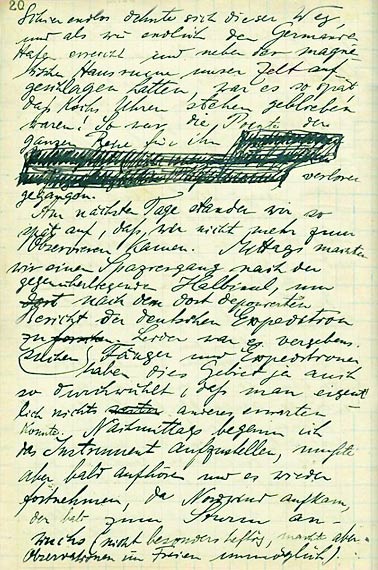 20
Schier endlos dehnte sich dieser Weg,
und als wir endlich den Germania
Hafen erreicht und neben der magne-
tischen Hausruine unser Zelt auf-
geschlagen hatten, war es so spät,
daß Kochs Uhren stehen geblieben
waren! So war die der
ganzen Reise für ihn
verloren
gegangen.
Am nächsten Tage standen wir so
spät auf, daß wir nicht mehr zum
Observieren kamen. Mittags machten
wir einen Spaziergang nach der
gegenüberliegenden Halbinsel, um
dort nach dem dort deponierten
Bericht der deutschen Expedition
zu Leider war es vergebens.
suchen Fänger und Expeditionen
haben dies Gebiet ja auch
so durchwühlt, daß man eigent-
lich nichts anderes erwarten
konnte. Nachmittags begann ich
das Instrument aufzustellen, mußte
aber bald aufhören und es wieder
fortnehmen, da Nordwind aufkam,
der bald zum Sturm an-
wuchs (nicht besonders heftig, machte aber
Observationen im Freien unmöglich).